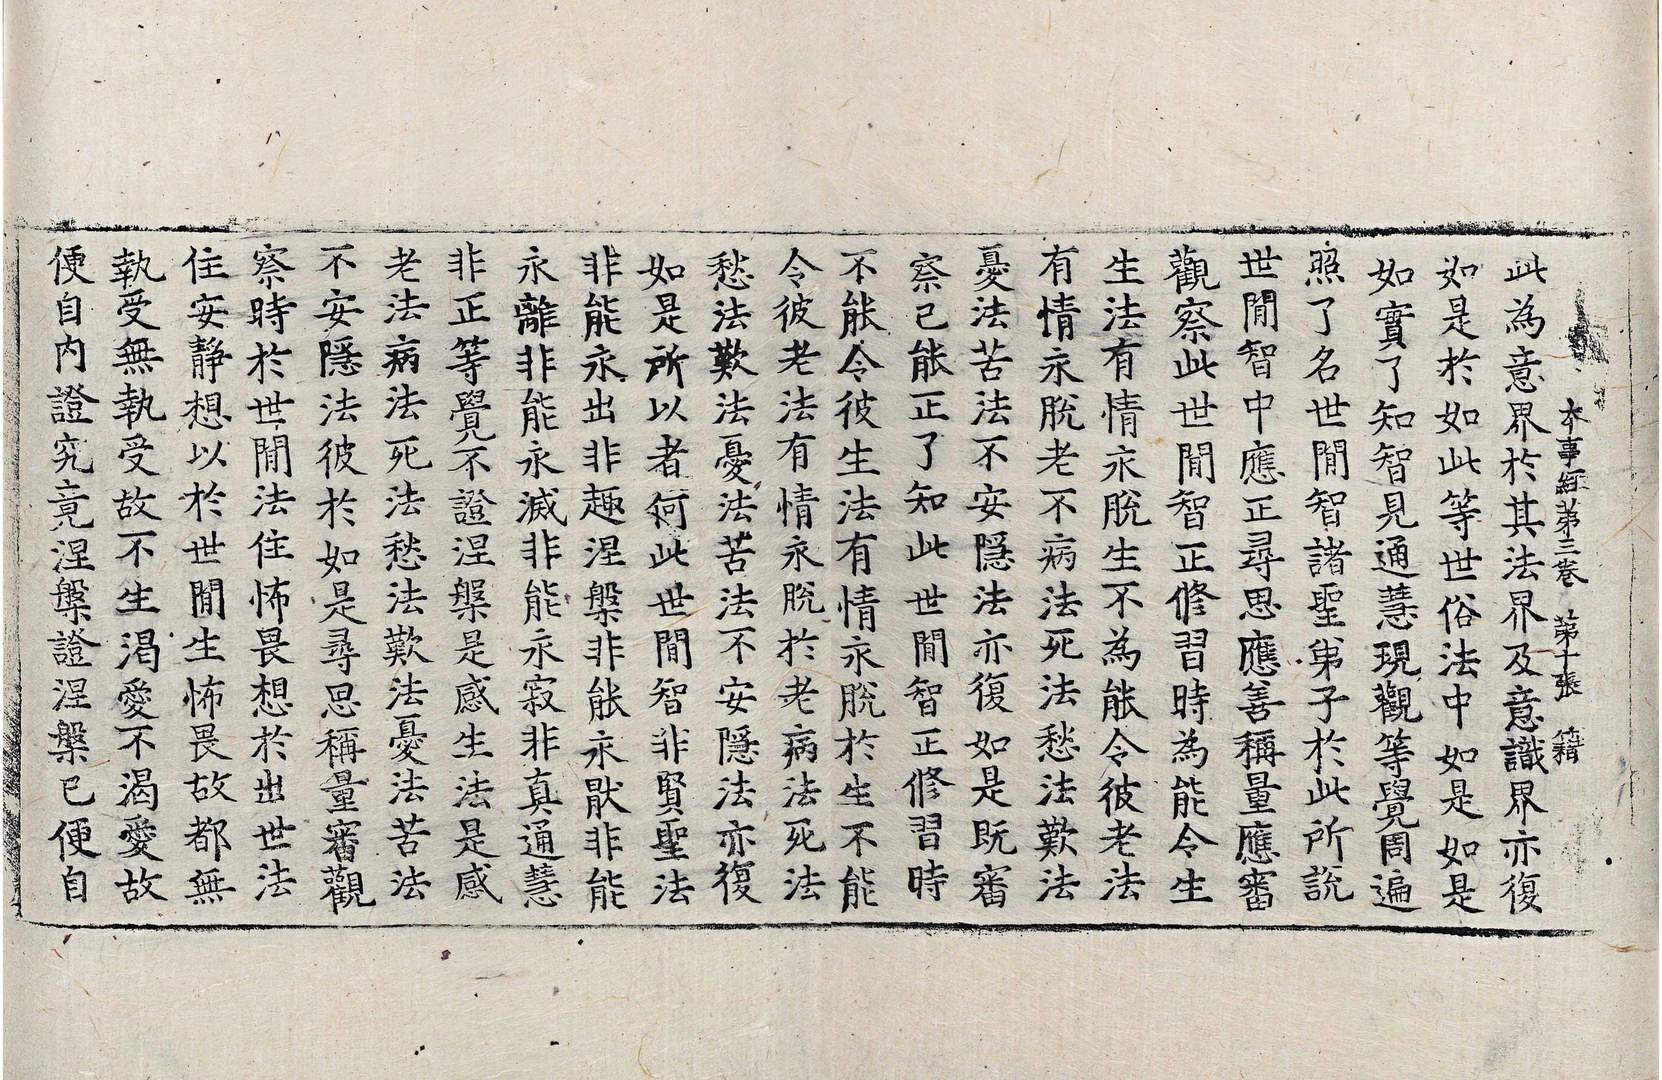 本事經第三卷 第十張 籍
此為意界於其法界及意識界亦復
如是於如此等世俗法中如是如是
如實了知智見通慧現觀等覺周遍
照了名世閒智諸聖弟子於此所說
世閒智中應正尋思應善稱量應審
觀察此世閒智正修習時為能令生
生法有情永脫生不為能令彼老法
有情永脫老不病法死法愁法歎法
憂法苦法不安隱法亦復如是既審
察已能正了知此世閒智正修習時
不能令彼生法有情永脫於生不能
令彼老法有情永脫於老病法死法
愁法歎法憂法苦法不安隱法亦復
如是所以者何此世閒智非賢聖法
非能永出非趣涅槃非能永猒非能
永離非能永滅非能永寂非真通慧
非正等覺不證涅槃是感生法是感
老法病法死法愁法歎法憂法苦法
不安隱法彼於如是尋思稱量審觀
察時於世閒法住怖畏想於出世法
住安靜想以於世閒生怖畏故都無
執受無執受故不生渴愛不渴愛故
便自內證究竟涅槃證涅槃已便自